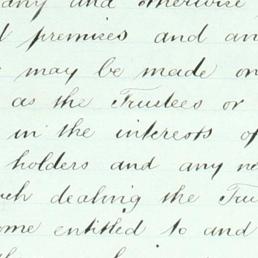 any and otherwise
premises and an
may be made on
as the Trustees or
in the interests of
holders and any
dealing the Tru
entitled to and